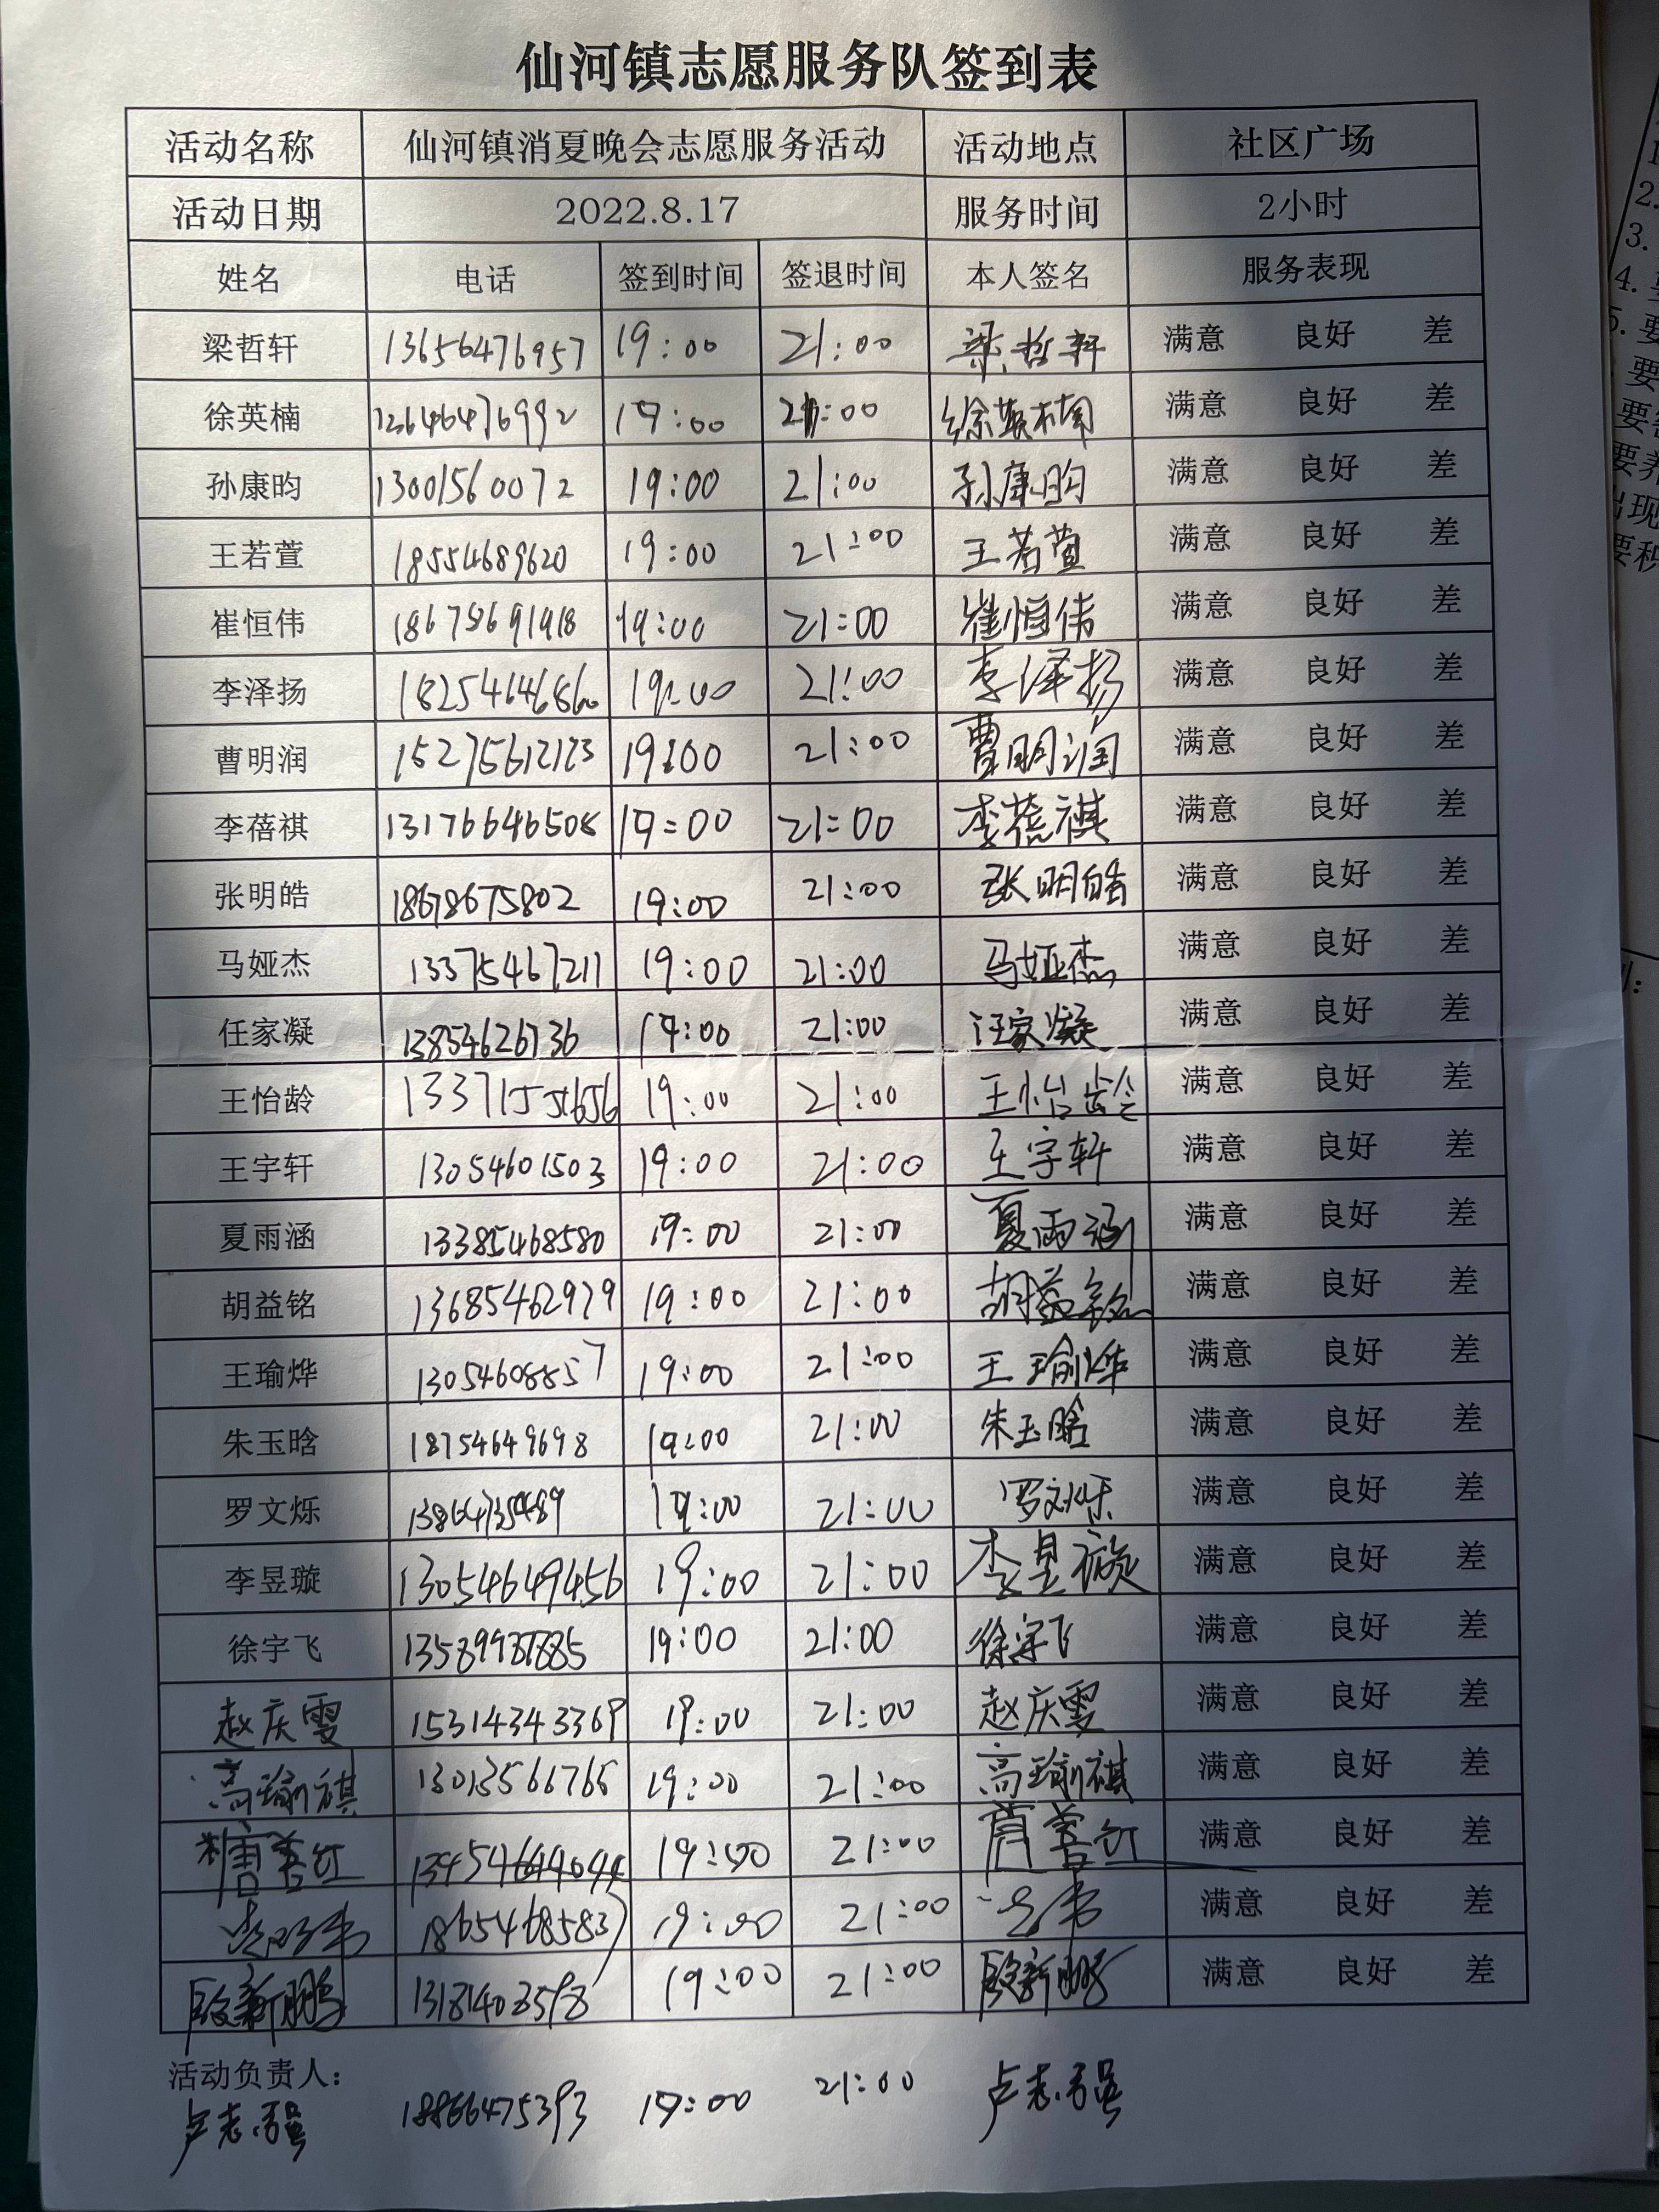 仙河镇志愿服务队签到表
活动名称 仙河镇消夏晚会志愿服务活动 活动地点 社区广场
活动日期 2022.8.17 服务时间 2小时
姓名 电话 签到时间 签退时间 本人签名 服务表现
梁哲轩 13656476957 19:00 21:00 梁哲轩 满意 良好 差
徐英楠 19:00 21:00 徐英楠 满意 良好 差
孙康昀 13001560072 19:00 21:00 孙康昀 满意 良好 差
王若萱 18554689620 19:00 21:00 王若萱 满意 良好 差
崔恒伟 18678691918 19:00 21:00 崔恒伟 满意 良好 差
李泽扬 18254646860 19:00 21:00 李泽扬 满意 良好 差
曹明润 15275612123 19:00 21:00 曹明润 满意 良好 差
李蓓祺 13176646508 19:00 21:00 李蓓祺 满意 良好 差
张明皓 18678675802 19:00 21:00 张明皓 满意 良好 差
马娅杰 13375467211 19:00 21:00 马娅杰 满意 良好 差
任家凝 13854626736 19:00 21:00 汪家凝 满意 良好 差
王怡龄 13371551656 19:00 21:00 王怡龄 满意 良好 差
王宇轩 13054601503 19:00 21:00 王宇轩 满意 良好 差
夏雨涵 13385468580 19:00 21:00 夏雨涵 满意 良好 差
胡益铭 13685462979 19:00 21:00 胡益铭 满意 良好 差
王瑜烨 13054608857 19:00 21:00 王瑜烨 满意 良好 差
朱玉晗 18754649698 19:00 21:00 朱玉晗 满意 良好 差
罗文烁 13864735489 19:00 21:00 罗文烁 满意 良好 差
李昱璇 13054649456 19:00 21:00 李昱璇 满意 良好 差
徐宇飞 13589987885 19:00 21:00 徐宇飞 满意 良好 差
赵庆雯 15314343369 19:00 21:00 赵庆雯 满意 良好 差
高瑜祺 13013566765 19:00 21:00 高瑜祺 满意 良好 差
19:00 21:00 满意 良好 差
18654685837 19:00 21:00 满意 良好 差
段新鹏 13181403598 19:00 21:00 段新鹏 满意 良好 差
活动负责人：
卢志强 18866475393 19:00 21:00 卢志强